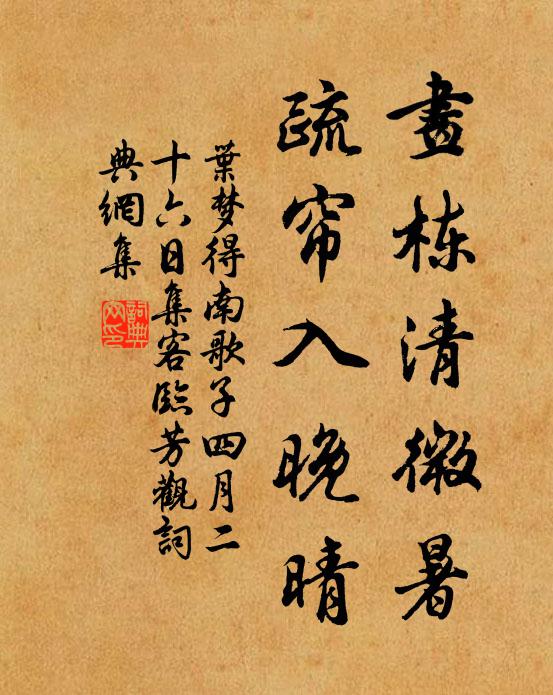 畫栋清微暑
疏帘入晚晴
葉梦得南歌子四月二
十六日集客臨芳觀詞
典網集
詞典
网印